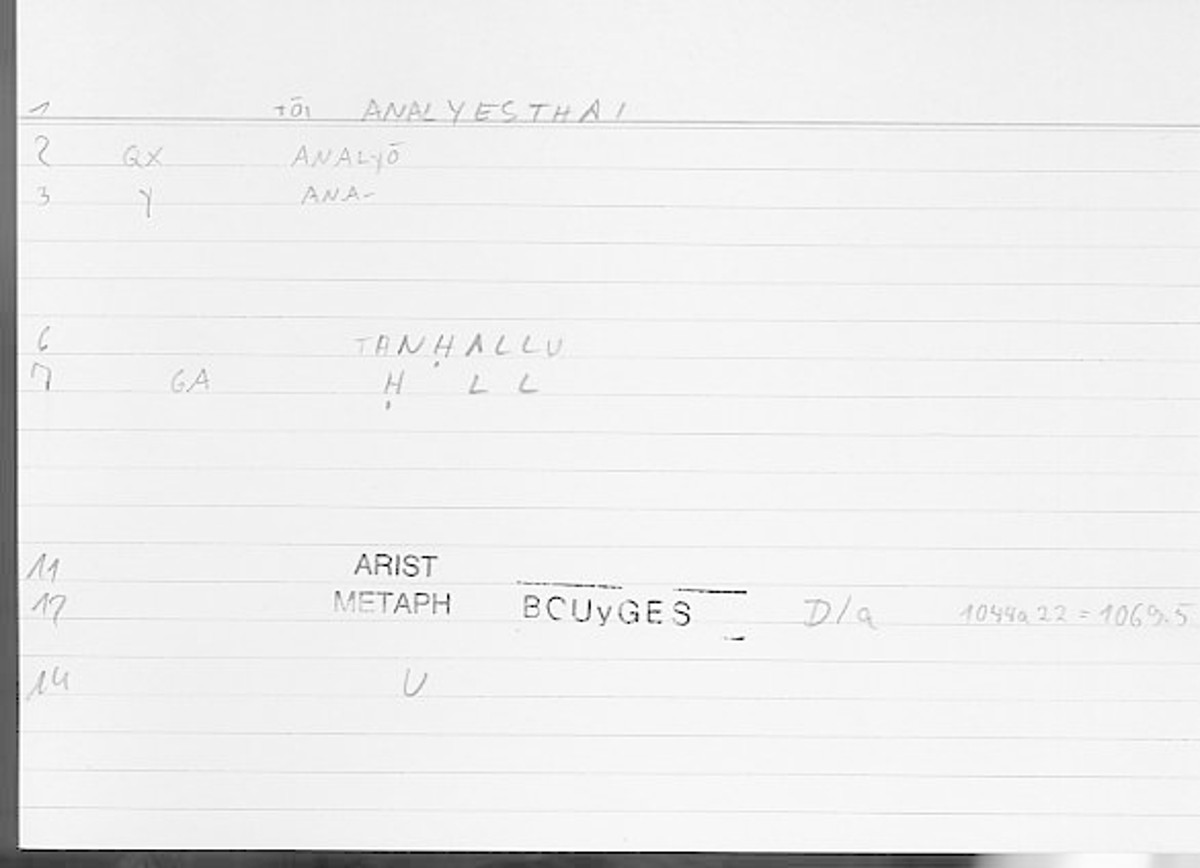 1 τōι ANALYESTHAI
2 QX ANALyō
3 Y ANA-
6 TANḤALLU
7 GA Ḥ L L
11 ARIST
12 METAPH BCUyGES D/a 1044a22 = 1069.5
14 U